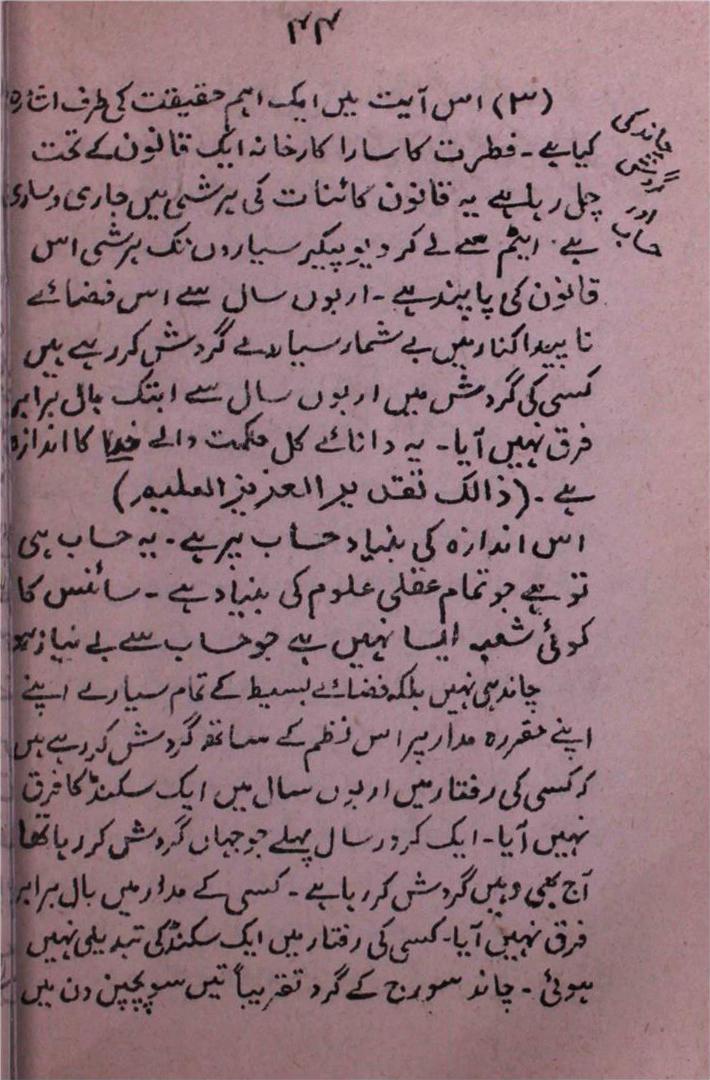 ۴۴
چاند کی
گردش
اور
حساب
(۳) اس آیت میں ایک اہم حقیقت کی طرف اشارہ
کیا ہے۔ فطرت کا سارا کارخانہ ایک قانون کے تحت
چل رہا ہے یہ قانون کائنات کی ہر شئی میں جاری و ساری
ہے۔ ایٹم سے لے کر دیو پیکر سیاروں تک ہر شئی اس
قانون کی پابند ہے۔ اربوں سال سے اس فضائے
ناپیدا کنار میں بے شمار سیارے گردش کر رہے ہیں
کسی کی گردش میں اربوں سال سے ابتک بال برابر
فرق نہیں آیا۔ یہ دانائے کل حکمت والے خدا کا اندازہ
ہے۔ (ذالک تقدیر العزیز العلیم)
اس اندازہ کی بنیاد حساب پر ہے۔ یہ حساب ہی
تو ہے جو تمام عقلی علوم کی بنیاد ہے۔ سائنس کا
کوئی شعبہ ایسا نہیں ہے جو حساب سے بے نیاز ہو
چاند ہی نہیں بلکہ فضائے بسیط کے تمام سیارے اپنے
اپنے مقررہ مدار پر اس نظم کے ساتھ گردش کر رہے ہیں
کہ کسی کی رفتار میں اربوں سال میں ایک سکنڈ کا فرق
نہیں آیا۔ ایک کرور سال پہلے جو جہاں گردش کر رہا تھا
آج بھی وہیں گردش کر رہا ہے۔ کسی کے مدار میں بال برابر
فرق نہیں آیا۔ کسی کی رفتار میں ایک سکنڈ کی تبدیلی نہیں
ہوئی۔ چاند سورج کے گرد تقریباً تین سو پچپن دن میں